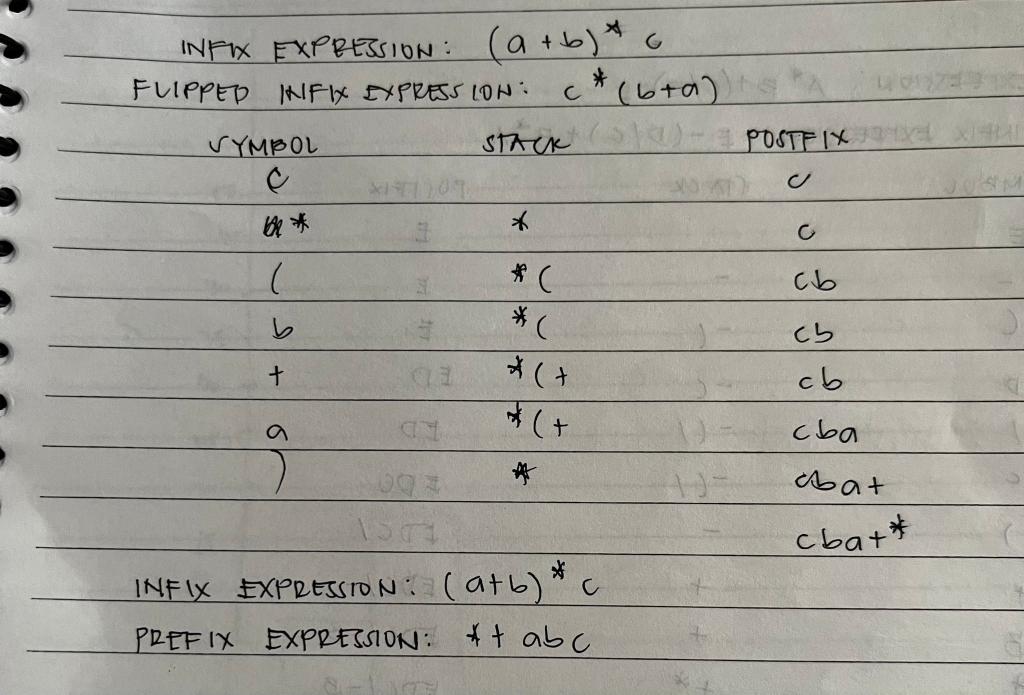 INFIX EXPRESSION: (a+b)* c
FLIPPED INFIX EXPRESSION: c*(b+a)
SYMBOL STACK POSTFIX
c c
* * c
( *( cb
b *( cb
+ *(+ cb
a *(+ cba
) * cba+
cba+*
INFIX EXPRESSION: (a+b)* c
PREFIX EXPRESSION: *+ abc